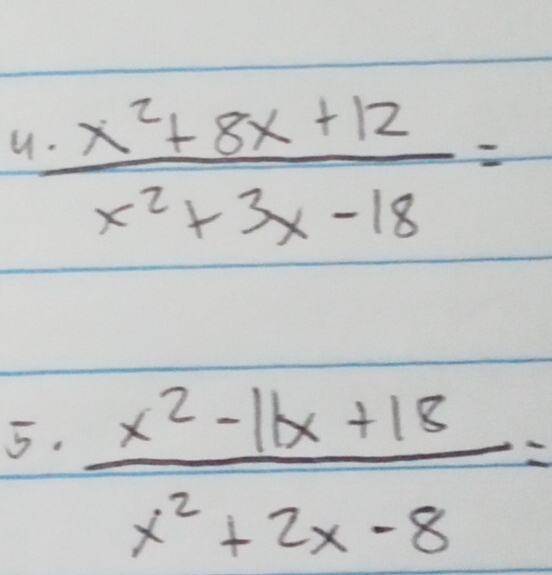 4. x²+8x+12 =
x²+3x-18
5. x²-11x+18 =
x²+2x-8